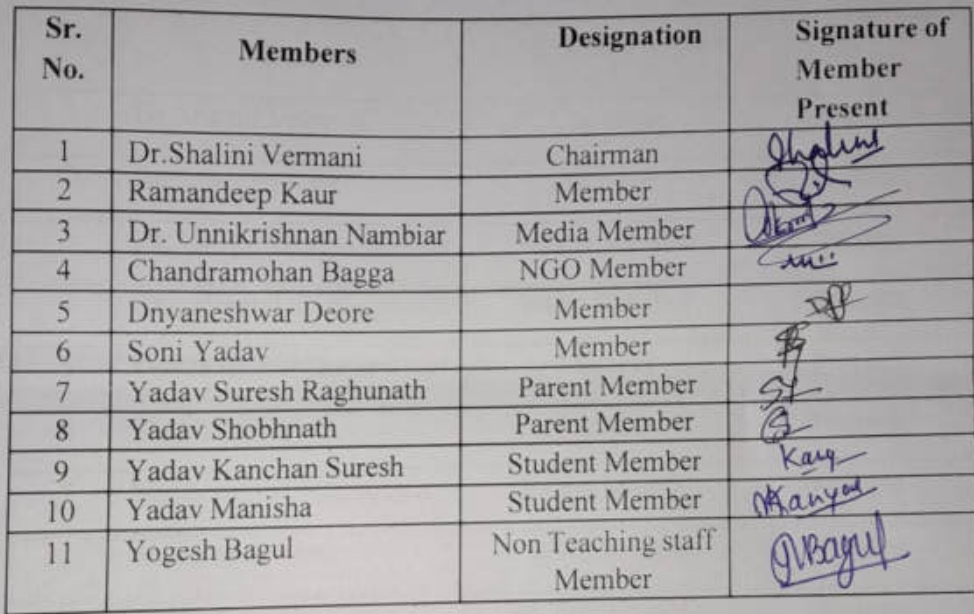 Sr. No. Members Designation Signature of Member Present
1 Dr.Shalini Vermani Chairman Shalini
2 Ramandeep Kaur Member
3 Dr. Unnikrishnan Nambiar Media Member
4 Chandramohan Bagga NGO Member
5 Dnyaneshwar Deore Member
6 Soni Yadav Member
7 Yadav Suresh Raghunath Parent Member
8 Yadav Shobhnath Parent Member
9 Yadav Kanchan Suresh Student Member
10 Yadav Manisha Student Member
11 Yogesh Bagul Non Teaching staff Member